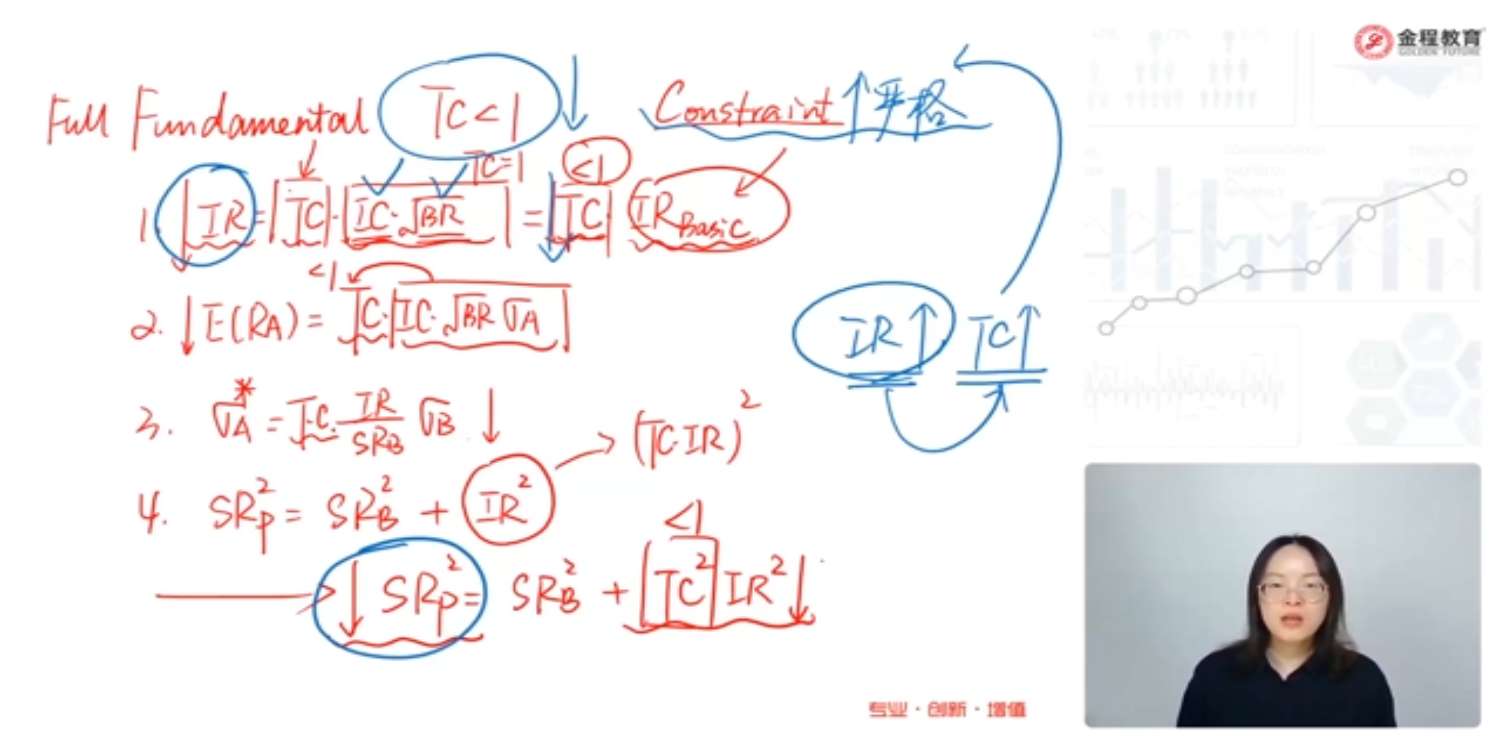 金程教育
GOLDEN FUTURE
Full Fundamental TC<1 ↓ Constraint ↑ 严格
TC=1 <1
1. ↓ IR = |TC|·|IC·√BR| = ↓|TC|·IR_Basic
<1
2. ↓ E(RA) = TC·|IC·√BR σA|
IR↑ TC↑
3. σA* = TC·IR/SRB σB ↓
4. SRp² = SRB² + IR² → (TC·IR)²
<1
→ ↓ SRp² = SRB² + |TC²| IR² ↓
专业·创新·增值